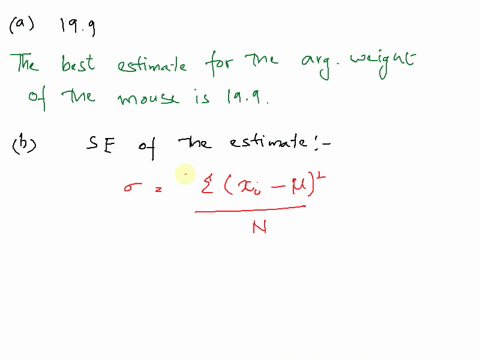 (a) 19.9
The best estimate for the arg. weight
of the mouse is 19.9.
(b) SE of the estimate:-
σ = Σ(xᵢ - μ)²
N